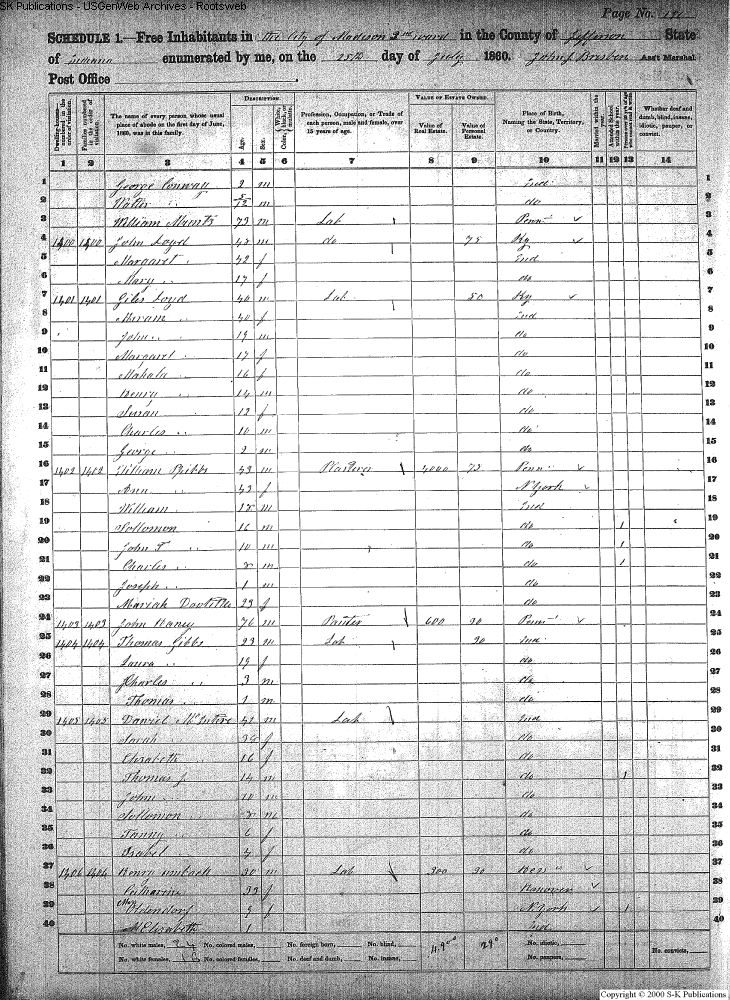 SK Publications - USGenWeb Archives - Rootsweb
Page No.
SCHEDULE 1.—Free Inhabitants in the City of Madison 2nd ward in the County of Jefferson State
of Indiana enumerated by me, on the 25th day of July 1860. John J Brisben Ass't Marshal
Post Office
DESCRIPTION. VALUE OF ESTATE OWNED.
Dwelling-houses numbered in the order of visitation. Families numbered in the order of visitation. The name of every person whose usual place of abode on the first day of June, 1860, was in this family. Age. Sex. Color, White, black, or mulatto. Profession, Occupation, or Trade of each person, male and female, over 15 years of age. Value of Real Estate. Value of Personal Estate. Place of Birth, Naming the State, Territory, or Country. Married within the year. Attended School within the year. Whether deaf and dumb, blind, insane, idiotic, pauper, or convict.
1 2 3 4 5 6 7 8 9 10 11 12 13 14
1 George Conway 2 m Ind 1
2 Walter " 5/12 m do 2
3 William 73 m Lab Penn 3
4 1400 1400 John Loyd 48 m do 75 Ky 4
5 Margaret " 42 f Ind 5
6 Mary " 17 f do 6
7 1401 1401 Giles Loyd 40 m Lab 50 Ky 7
8 " 40 f Ind 8
9 John " 19 m do 9
10 Margaret " 17 f do 10
11 Mahala " 16 f do 11
12 Henry " 14 m do 12
13 Susan " 12 f do 13
14 Charles " 10 m do 14
15 George " 2 m do 15
16 1402 1402 William 43 m Plasterer 4000 75 Penn 16
17 Ann " 43 f N York 17
18 William " 18 m Ind 18
19 Sollomon 16 m do 1 19
20 John T " 10 m do 1 20
21 Charles " 8 m do 1 21
22 Joseph " 1 m do 22
23 Mariah 23 f do 23
24 1403 1403 John Haney 76 m Painter 600 30 Penn 24
25 1404 1404 Thomas Gibbs 23 m Lab 30 Ind 25
26 Laura " 19 f do 26
27 Charles " 3 m do 27
28 Thomas " 1 m do 28
29 1405 1405 Daniel McIntire 42 m Lab Ind 29
30 Sarah " f do 30
31 Elizabeth " 16 f do 31
32 Thomas J. 14 m do 1 32
33 John " 10 m do 33
34 Sollomon " 8 m do 34
35 Fanny " 6 f do 35
36 Isabel " 4 f do 36
37 1406 1406 Henry 30 m Lab 300 30 37
38 Catharine 33 f Hanover 38
39 Mary Oldendorf 5 f N York 1 39
40 M Elizabeth 1 Ind 40
No. white males, 24 No. colored males, No. foreign born, No. blind, No. idiotic,
No. white females, 16 No. colored females, No. deaf and dumb, No. insane, No. paupers, No. convicts,
Copyright © 2000 S-K Publications